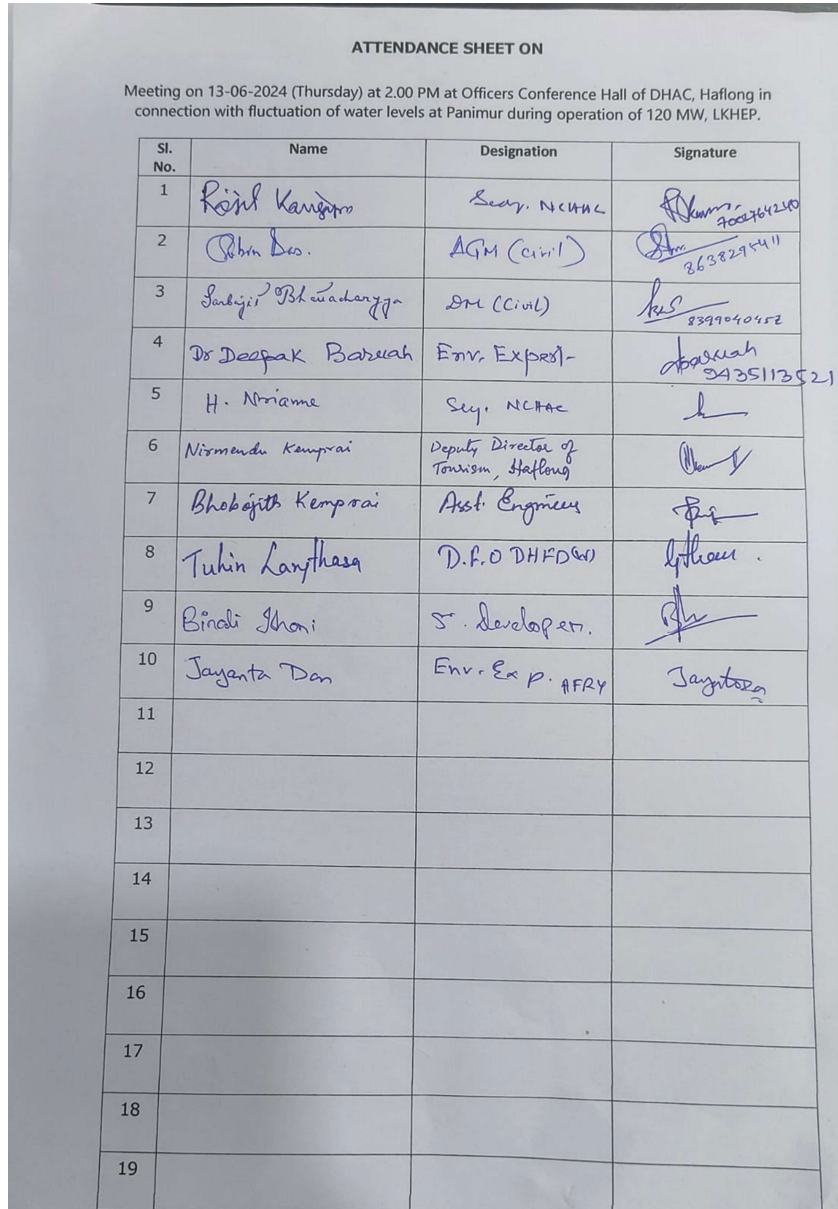 ATTENDANCE SHEET ON
Meeting on 13-06-2024 (Thursday) at 2.00 PM at Officers Conference Hall of DHAC, Haflong in
connection with fluctuation of water levels at Panimur during operation of 120 MW, LKHEP.
Sl. No. Name Designation Signature
1 Secy. NCHAC
7002764240
2 AGM (Civil)
8638295411
3 Sarbajit Bhattacharyya DM (Civil)
8399040452
4 Dr Deepak Baruah Env. Expert Dbaruah
9435113521
5 H. Secy. NCHAC
6 Nirmendu Kemprai Deputy Director of
Tourism, Haflong
7 Bhobojith Kemprai Asst. Engineer
8 Tuhin Langthasa D.F.O DHFD(W)
9 S. Developer.
10 Jayanta Env. Exp. AFRY
11
12
13
14
15
16
17
18
19